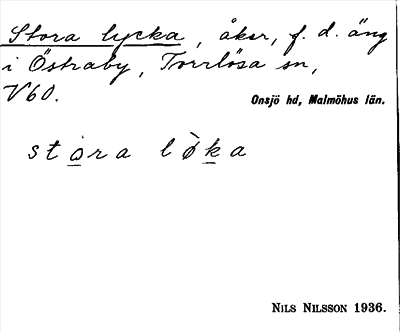 Stora lycka, åker, f. d. äng
i Östraby, Torrlösa sn,
V60.
Onsjö hd, Malmöhus län.
stora lø̀ka
NILS NILSSON 1936.